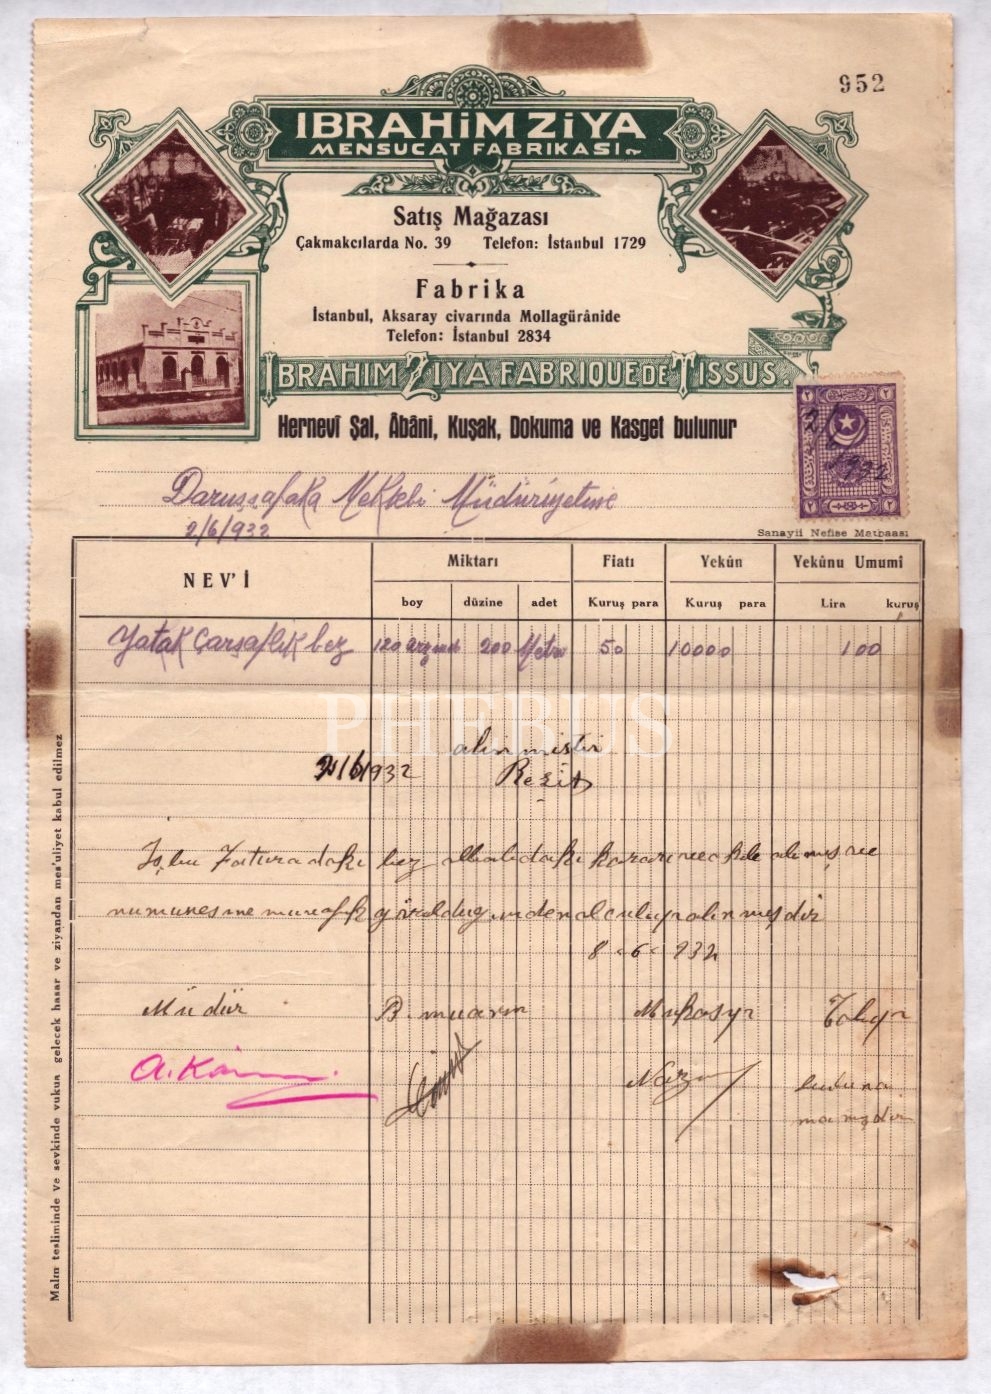 952
IBRAHİM ZİYA
MENSUCAT FABRIKASI
Satış Mağazası
Çakmakcılarda No. 39 Telefon: İstanbul 1729
Fabrika
İstanbul, Aksaray civarında Mollagürânide
Telefon: İstanbul 2834
IBRAHIM ZIYA FABRIQUE DE TISSUS
Hernevî Şal, Âbâni, Kuşak, Dokuma ve Kasget bulunur
2/6/932
Darüşşafaka Mektebi Müdüriyetine
2/6/932
Sanayii Nefise Matbaası
NEV'İ Miktarı Fiatı Yekûn Yekûnu Umumî
boy düzine adet Kuruş para Kuruş para Lira kuruş
Yatak Çarşaflık bez 120 200 Metro 50 10000 100
PHEBUS
alınmıştır
2/6/932 Reşit
İşbu Faturadaki bez karar alınmış ve
numunesine muvafık görüldüğünden alınmışdır
8-6-932
Müdür B. muavin Talip
A. Kâmi
buluna
mamışdır
Malın tesliminde ve sevkinde vukua gelecek hasar ve ziyandan mes'uliyet kabul edilmez